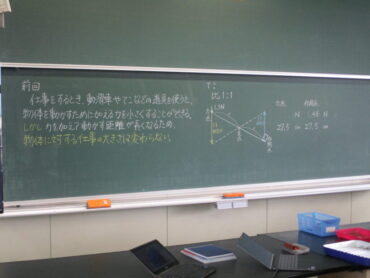 前回
仕事をするとき、動滑車やてこなどの道具を使うと、
物体を動かすために加える力を小さくすることができる。
しかし力を加えて動かす距離が長くなるため、
物体に対する仕事の大きさは変わらない。
てこ
比 1:1
力点 作用点
N N
27.5 cm 27.5 cm